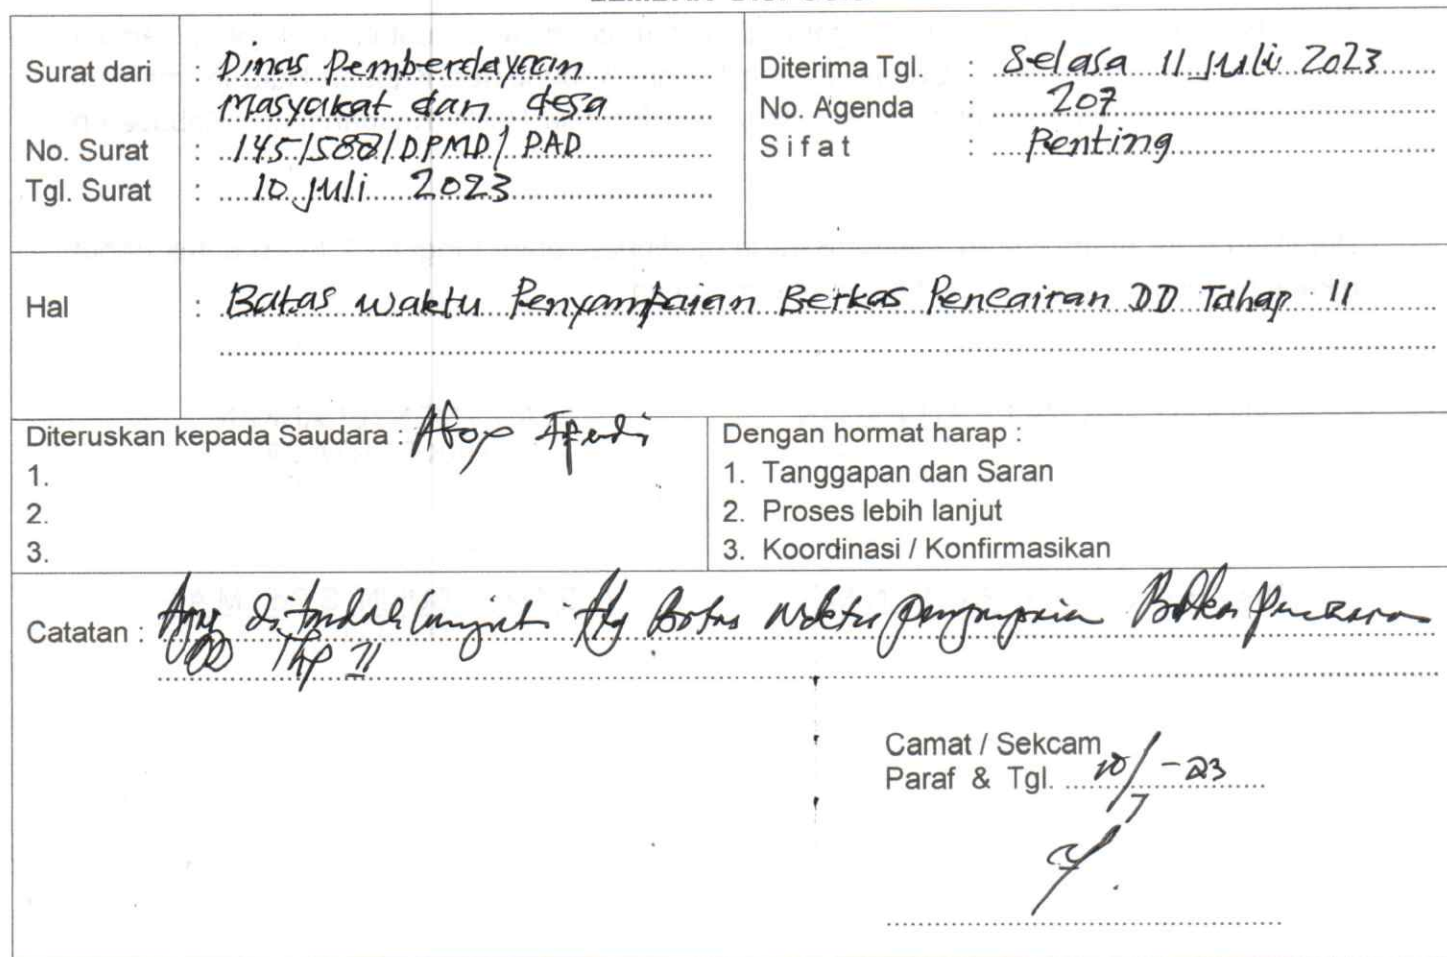 Surat dari : Dinas Pemberdayaan
masyakat dan desa
No. Surat : 145/588/DPMD/PAD
Tgl. Surat : 10 juli 2023
Diterima Tgl. : Selasa 11 juli 2023
No. Agenda : 207
Sifat : Penting
Hal : Batas waktu Penyampaian Berkas Pencairan DD Tahap II
Diteruskan kepada Saudara :
1.
2.
3.
Dengan hormat harap :
1. Tanggapan dan Saran
2. Proses lebih lanjut
3. Koordinasi / Konfirmasikan
Catatan : di tindak lanjuti ttg Batas waktu
DD Thp II
Camat / Sekcam
Paraf & Tgl. 10/7-23